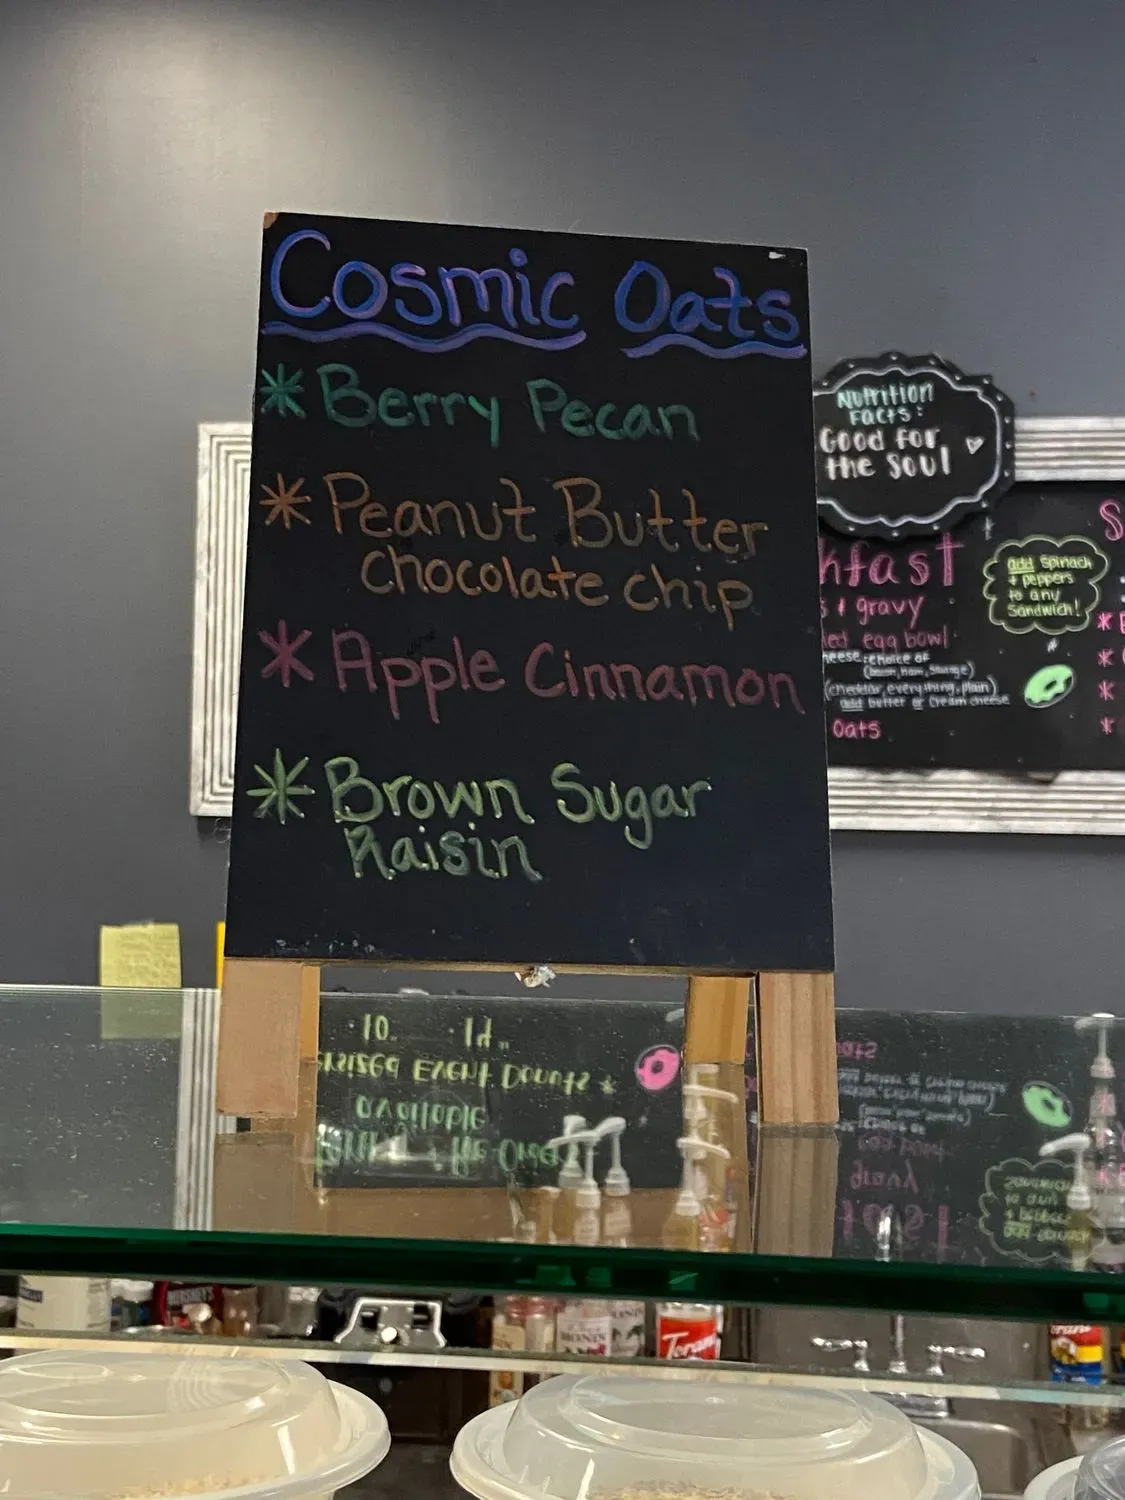 Cosmic Oats
* Berry Pecan
* Peanut Butter
chocolate chip
* Apple Cinnamon
* Brown Sugar
Raisin
Nutrition
Facts:
Good for
the Soul
& gravy
egg bowl
choice of
(bacon, ham, sausage)
(cheddar, everything, plain)
add butter or cream cheese
Oats
add spinach
+ peppers
to any
Sandwich!
HERSHEY'S
MONIN
Torani